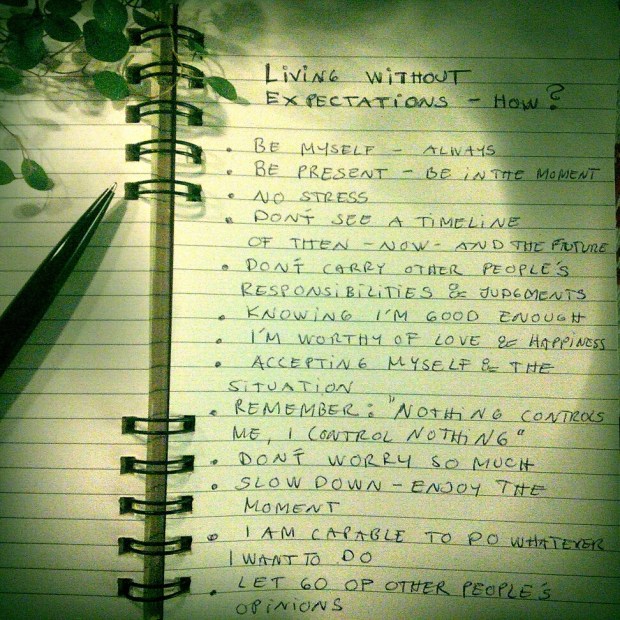 LIVING WITHOUT
EXPECTATIONS - HOW?
• BE MYSELF - ALWAYS
• BE PRESENT - BE IN THE MOMENT
• NO STRESS
• DON'T SEE A TIMELINE
OF THEN - NOW - AND THE FUTURE
• DON'T CARRY OTHER PEOPLE'S
RESPONSIBILITIES & JUDGMENTS
• KNOWING I'M GOOD ENOUGH
• I'M WORTHY OF LOVE & HAPPINESS
• ACCEPTING MYSELF & THE
SITUATION
• REMEMBER: "NOTHING CONTROLS
ME, I CONTROL NOTHING"
• DON'T WORRY SO MUCH
• SLOW DOWN - ENJOY THE
MOMENT
• I AM CAPABLE TO DO WHATEVER
I WANT TO DO
• LET GO OF OTHER PEOPLE'S
OPINIONS